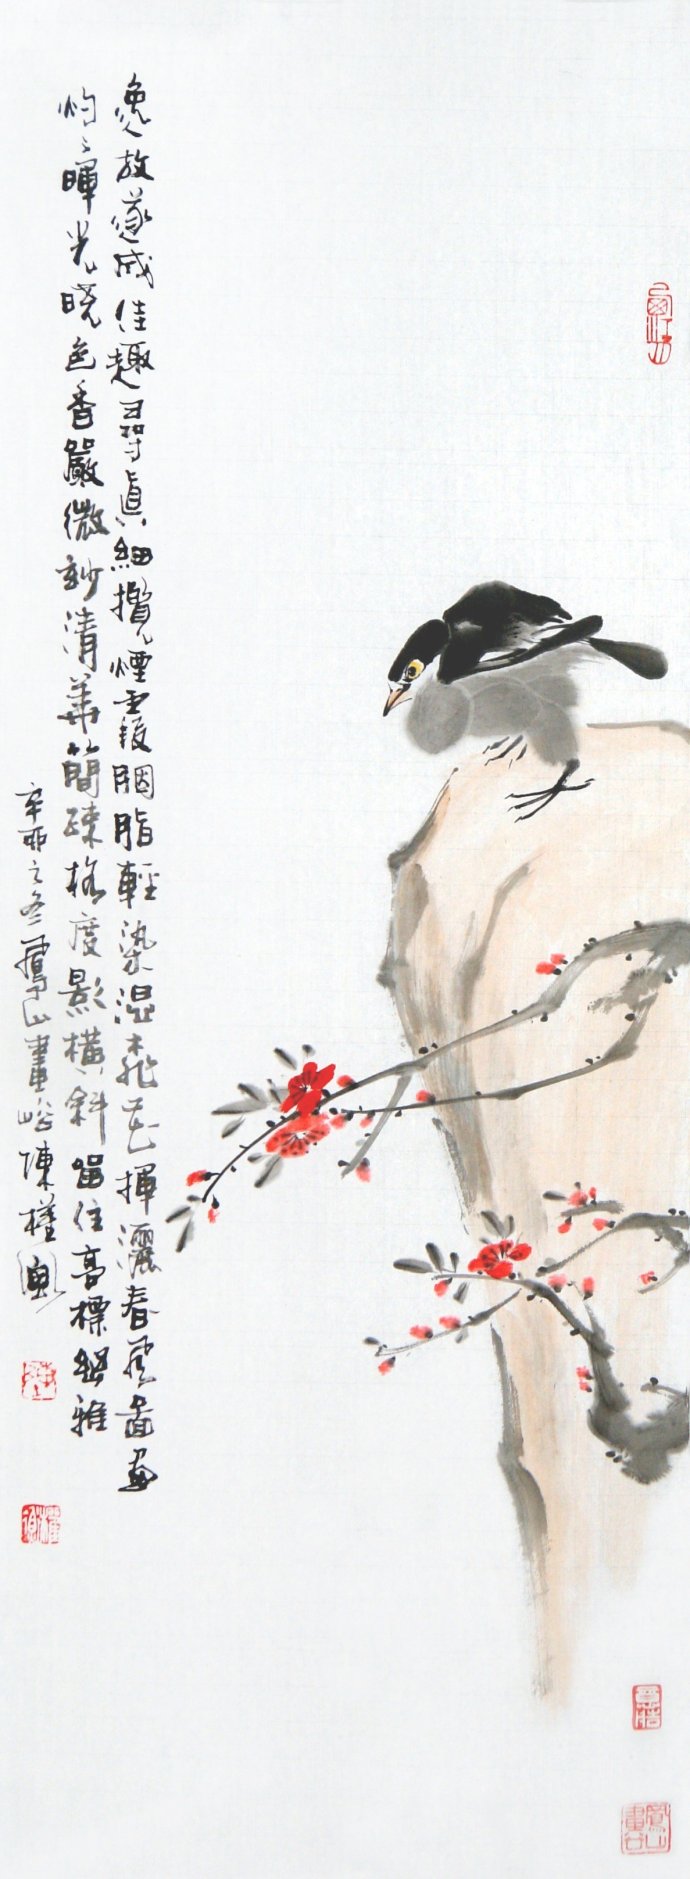 逸放遂成佳趣尋真細攬煙霞胭脂輕染湿飛花揮灑春風畫
灼灼暉光曉色香嚴微妙清華簡疎格度影橫斜留住高標雅
辛卯之冬鷺山畫峪陳權
鷺山畫谷